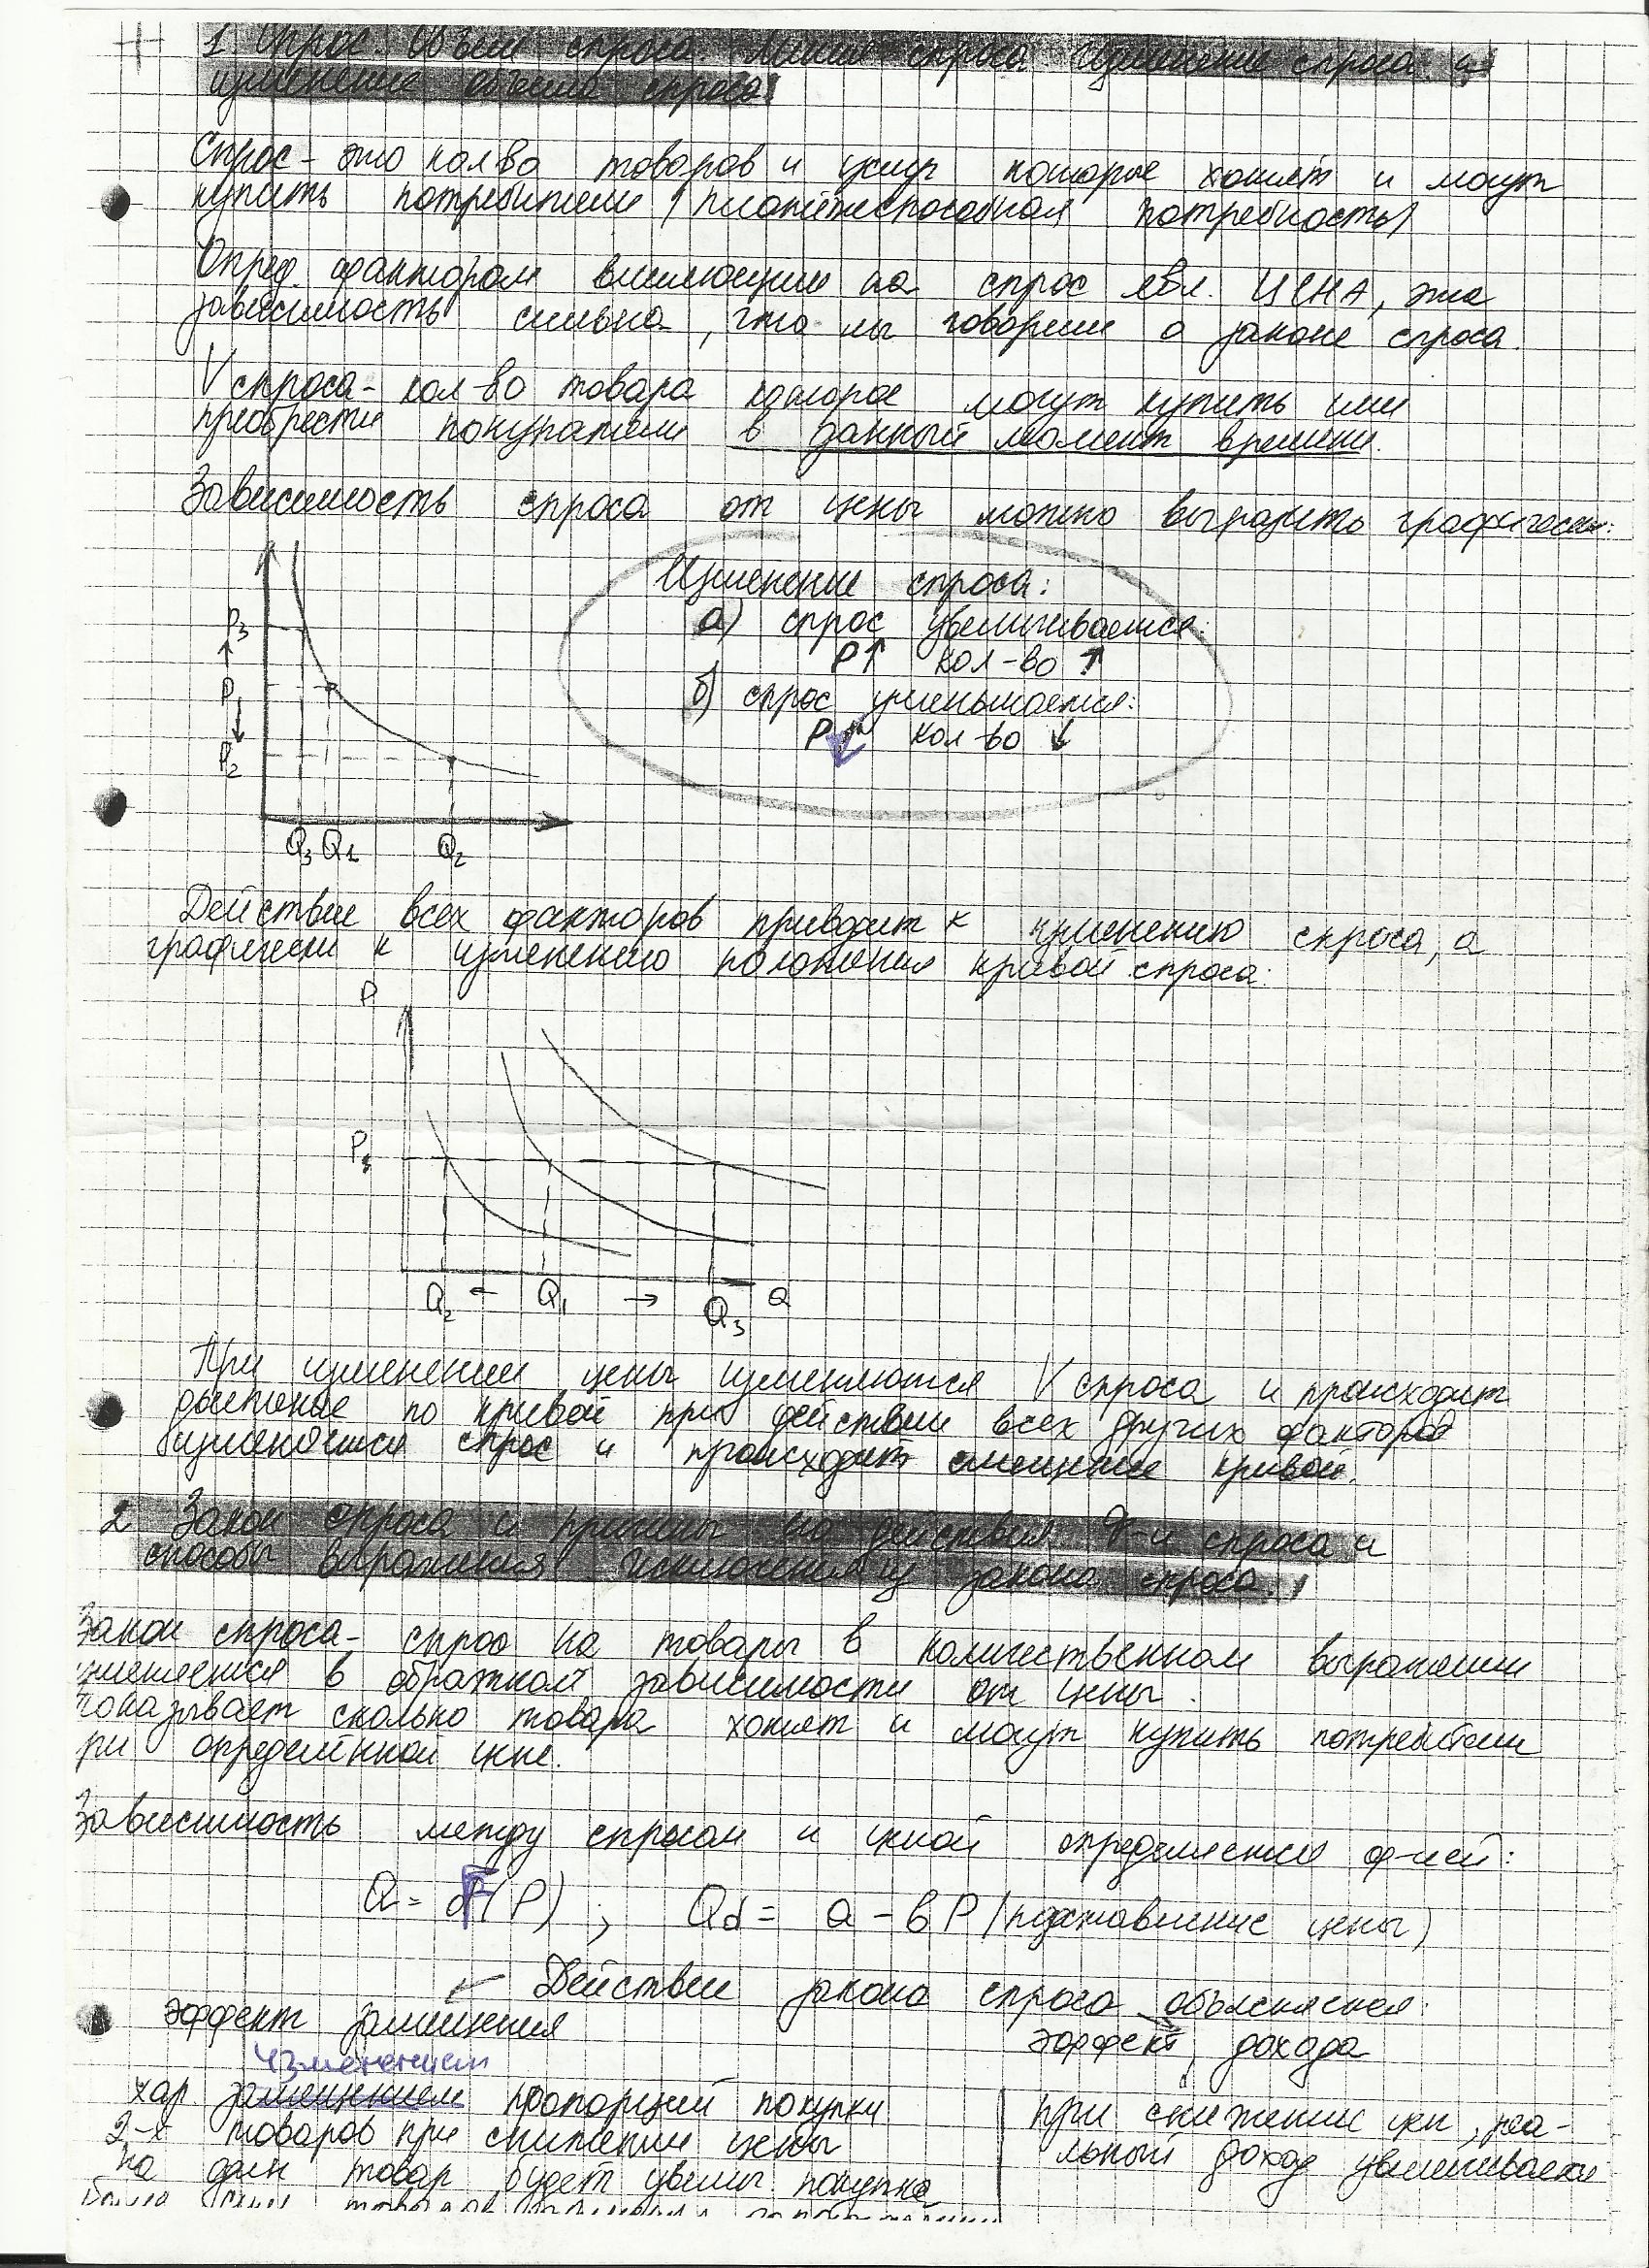 1 Спрос. Объем спроса. Линия спроса. Изменение спроса и
изменение объема спроса.
Спрос - это кол во товаров и услуг которые хотят и могут
купить потребители (платёжеспособная потребность)
Опред. фактором влияющим на спрос явл. ЦЕНА, эта
зависимость сильна, что мы говорим о законе спроса.
V спроса - кол-во товара которое могут купить или
преобрести покупатели в данный момент времени.
Зависимость спроса от цены можно выразить графически:
Изменение спроса:
а) спрос увеличивается:
P↑ кол-во ↑
б) спрос уменьшается:
P↓ кол-во ↓
P3
↑
P1
↓
P2
Q3 Q1 Q2
Действие всех факторов приводит к изменению спроса, а
графически к изменению положения кривой спроса:
P
P1
Q2 ← Q1 → Q3 Q
При изменении цены изменяются V спроса и происходит
движение по кривой при действии всех других факторов
изменяется спрос и происходит смещение кривой.
2 Закон спроса и причины его действия. Ф-и спроса и
способы выражения. Исключения из закона спроса.
Закон спроса - спрос на товары в количественном выражении
изменяется в обратной зависимости от цены.
Показывает сколько товара хотят и могут купить потребители
при определённой цене.
Зависимость между спросом и ценой определяется ф-ией:
Q = F(P) ; Qd = a - вP (подставление цены)
Действие закона спроса объясняется:
эффект замещения
эффект дохода
изменением
хар. замещением пропорций покупки
2-х товаров при снижении цены
на один товар будет увелич. покупка
при снижение цен, реа-
льный доход увеличивается